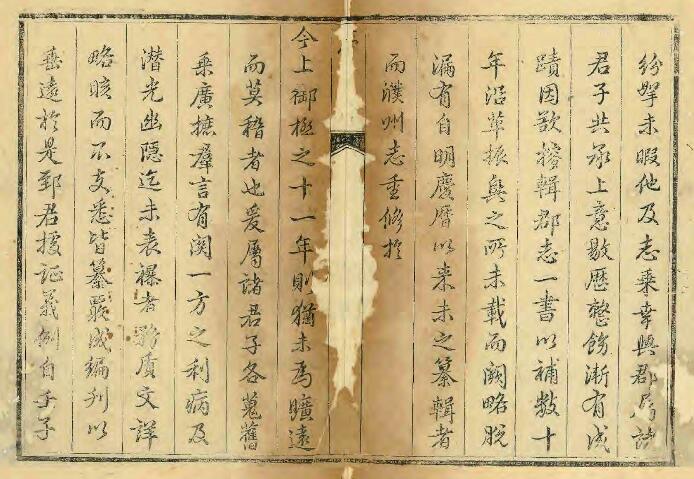 紛拏未暇他及志乘幸與郡局諸
君子共承上意敭歷整飭漸有成
蹟因欲搜輯郡志一書以補數十
年沿革振興之所未載而闕略脫
漏有自明慶曆以来未之纂輯者
而濮州志重修於
今上御極之十一年則猶未為曠遠
而莫稽者也爰屬諸君子各蒐舊
乘廣摭群言有関一方之利病及
潛光幽隱迄未表襮者務質文詳
略晐而不支悉皆纂嚴成編刊以
垂遠於是郅君援証義例自手子